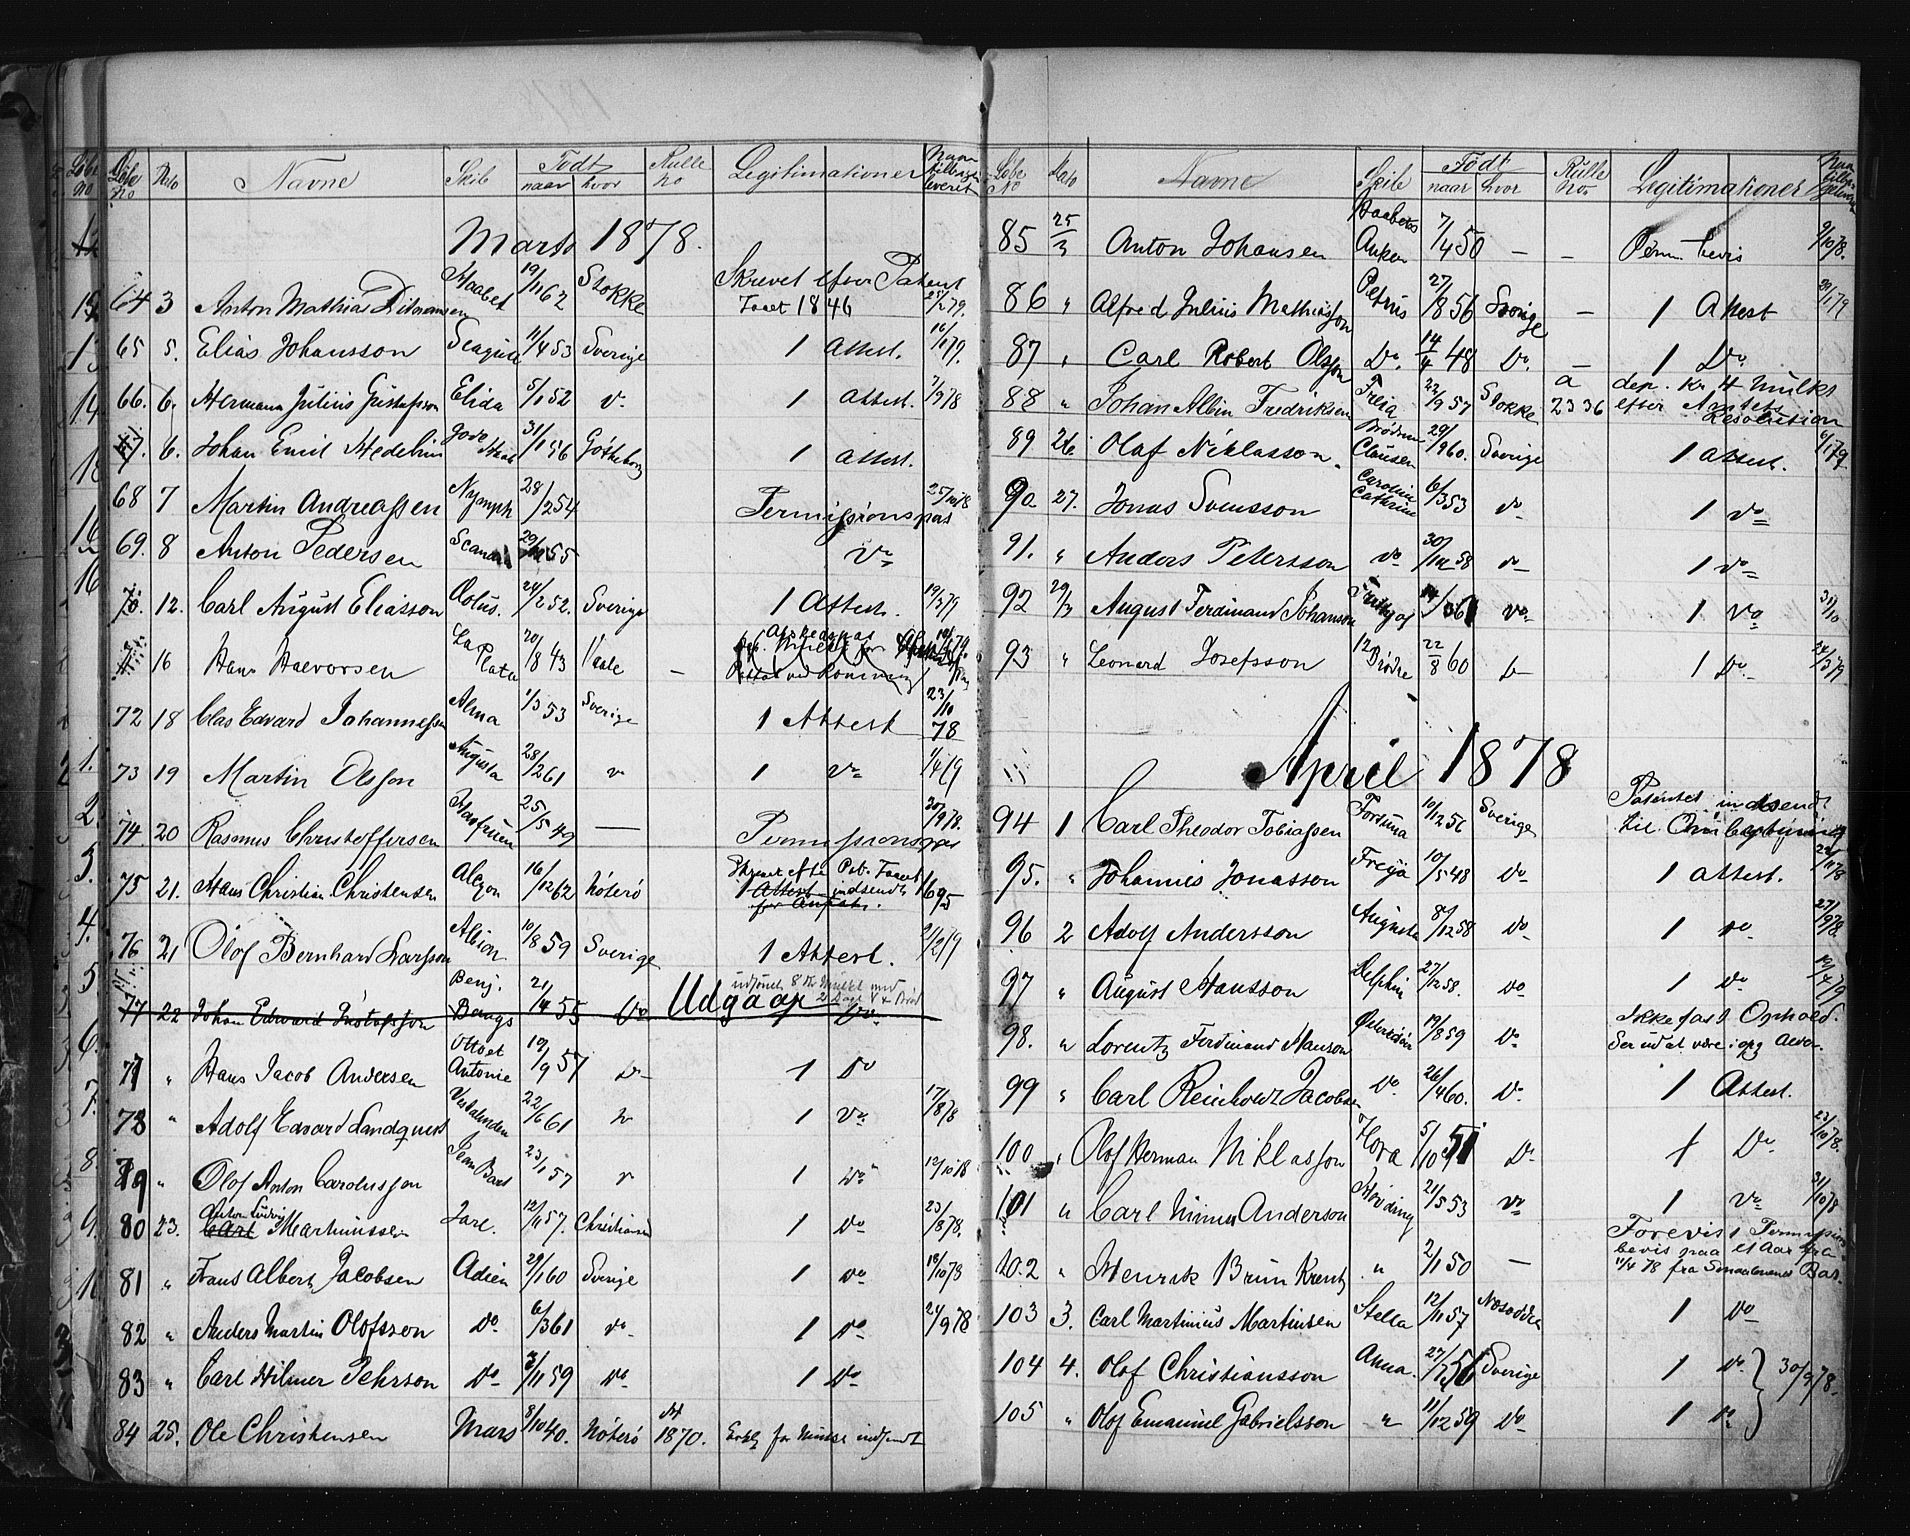 Løbe No Dato Navne Skib Födt naar hvor Rulle no Legitimationer Naar tilbageleveret
Marts 1878.
64 3 Anton Mathias Ditmansen Haabet 19/1 62 Stokke Skrevet efter Patent Taaet 1846 25/2 79.
65 5. Elias Johansson Seagull 11/4 53 Sverige 1 Attest. 16/1 79.
66. 6. Herman Julius Gustafsson Elida 5/1 52 Do 1 Attest. 7/9 78
67. 6. Johan Emil Hedelin 31/1 56 Gøtheborg 1 Attest.
68 7 Martin Andreassen Nymph 28/2 54 Permissionspas 25/10 78
69. 8 Anton Pedersen 55 Do
70. 12. Carl August Eliasson Lotus. 24/2 52. Sverige 1 Attest. 19/3 79
16 Hans Halvorsen La Plata 20/8 43 —
72 18 Clas Edvard Johannessen Alma 1/3 53 Sverige 1 Attest 23/10 78
73 19 Martin Olsson Augusta 28/2 61 Do 1 Do 1/4 79
74. 20 Rasmus Christoffersen Havfruen 25/5 49 — Permissionspas 20/9 78.
75 21. Hans Christian Christensen Alcyon 16/12 62 Nøterø 1 Attest indsendt 1695
76 21 Olof Bernhard Larsson Albion 10/8 59 Sverige 1 Attest.
77 22 Johan Edward Gustafsson Benj. Bangs 21/4 55 Do Udgaar 1 Do
77 " Hans Jacob Andersen Otto et Antonie 19/9 57 Do 1 Do
78 " Adolf Edvard Landquist 22/6 61 Do 1 Do. 17/8 78
79 " Olof Anton Carolusson Jean Bart 23/1 57 Do 1 Do 12/10 78
80 23. Anton Ludvig Carl Martinussen Jarl. 12/11 57. 1 Do 23/8 78.
81 " Frans Albert Jacobsen Adien 29/1 60 Sverige 1 Do 18/10 78
82 " Anders Martin Olofsson Do. 6/3 61 Do. 1 Do 24/9 78
83 " Carl Hilmer Pehrson Do 3/11 59 Do 1 Do
84 25. Ole Christensen Mars 8/10 40. Nøterø 1870. indsendt
Løbe No Dato Navne Skib Födt naar hvor Rulle no. Legitimationer
85 25/3 Anton Johansen Haabets Anker 7/4 50 — — Perm bevis 9/10 78.
86 " Alfred Julius Mathiasson Petrus 27/8 56 Sverige — 1 Attest 29/1 79
87 " Carl Robert Olsson Do. 14/4 48 Do. — 1 Do.
88 " Johan Albin Fredriksen Freia 22/9 57 Stokke a 2336 dep. Kr 4 Mulkt efter Amtets Resolution
89 26 Olaf Niklasson. Brødrene Clausen 29/9 60. Sverige 1 Attest. 6/1 79
90 27. Jonas Svensson Caroline Cathrine 6/3 53 Do 1 Do
91. " Anders Petersson Do 30/12 58 Do 1 Do
92 29/3 August Ferdinand Johanson Frithjof 61 Do 1 Do 31/10
93 " Leonard Josefsson 12 Brødre 22/8 60 Do 1 Do. 24/3 79
April 1878
94 1 Carl Theodor Tobiassen Fortuna 10/12 56 Sverige Patentet indsendt til
95. " Johannes Jonasson Freija 10/5 48 Do 1 Attest. 22/11 78
96 2 Adolf Andersson Augusta 8/12 58 Do 1 Do. 27/9 78
97 " August Hansson Delphin 27/12 58. Do 1 Do 19/4 79
98. " Lorentz Ferdinand Hanson 19/8 59 Do Ikke fast Ophold. Ser ud at være
99 " Carl Reinholdt Jacobsen Do. 26/4 60. Do. 1 Attest.
100 " Olof Herman Niklasson Flora 5/10 51 Do 1 Do 23/10 78.
101 " Carl Hinnes Anderson Høvding 21/5 53 Do 1 Do 31/10 78
102 " Henrik Brun Krentz " 2/1 50 — Forevist Permissions bevis paa et Aar fra 11/4 78 fra
103 3. Carl Martinius Martinsen Stella 12/11 57 Nesodden 1 Do
104 4. Olof Christiansson Anna. 27/7 56 Sverige 1 Do. 30/9 78.
105 " Olof Emanuel Gabrielsson " 11/12 59 Do 1 Do